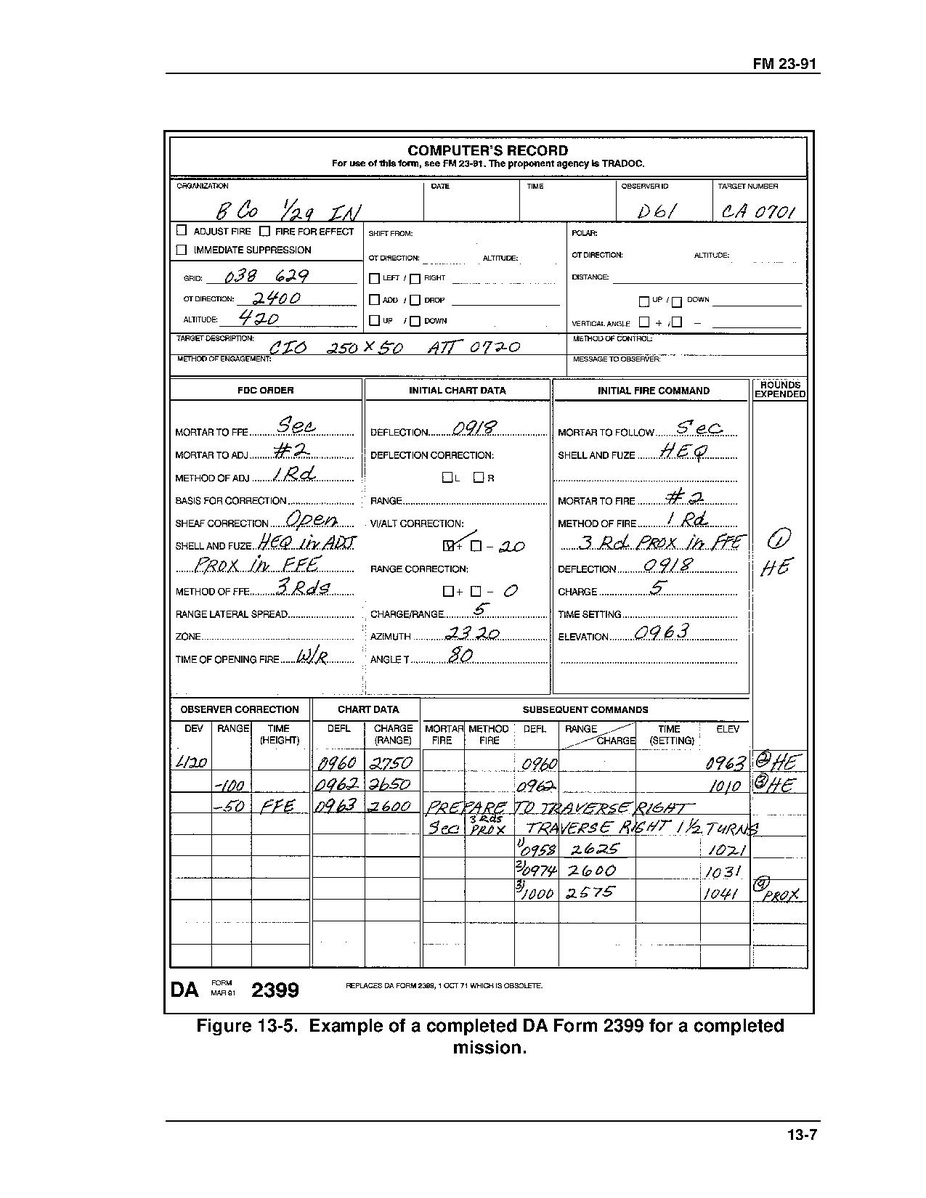 FM 23-91
COMPUTER'S RECORD
For use of this form, see FM 23-91. The proponent agency is TRADOC.
ORGANIZATION DATE TIME OBSERVER ID TARGET NUMBER
B Co 1/29 IN D61 CA 0701
ADJUST FIRE FIRE FOR EFFECT SHIFT FROM: POLAR:
IMMEDIATE SUPPRESSION OT DIRECTION: ALTITUDE: OT DIRECTION: ALTITUDE:
GRID: 038 629 LEFT / RIGHT DISTANCE:
OT DIRECTION: 2400 ADD / DROP UP / DOWN
ALTITUDE: 420 UP / DOWN VERTICAL ANGLE + / −
TARGET DESCRIPTION: CIO 250 X 50 ATT 0720 METHOD OF CONTROL:
METHOD OF ENGAGEMENT: MESSAGE TO OBSERVER:
FDC ORDER INITIAL CHART DATA INITIAL FIRE COMMAND ROUNDS EXPENDED
MORTAR TO FFE Sec DEFLECTION 0918 MORTAR TO FOLLOW Sec
MORTAR TO ADJ #2 DEFLECTION CORRECTION: SHELL AND FUZE HEQ
METHOD OF ADJ 1 Rd L R
BASIS FOR CORRECTION RANGE MORTAR TO FIRE #2
SHEAF CORRECTION Open VI/ALT CORRECTION: METHOD OF FIRE 1 Rd
SHELL AND FUZE HEQ in ADJ + − 20 3 Rd PROX in FFE 1
PROX in FFE RANGE CORRECTION: DEFLECTION 0918 HE
METHOD OF FFE 3 Rds + − 0 CHARGE 5
RANGE LATERAL SPREAD CHARGE/RANGE 5 TIME SETTING
ZONE AZIMUTH 2320 ELEVATION 0963
TIME OF OPENING FIRE W/R ANGLE T 80
OBSERVER CORRECTION CHART DATA SUBSEQUENT COMMANDS
DEV RANGE TIME (HEIGHT) DEFL CHARGE (RANGE) MORTAR FIRE METHOD FIRE DEFL RANGE CHARGE TIME (SETTING) ELEV
L120 0960 2750 0960 0963 2 HE
-100 0962 2650 0962 1010 3 HE
-50 FFE 0963 2600 PREPARE TO TRAVERSE RIGHT
Sec 3 Rds PROX TRAVERSE RIGHT 1½ TURNS
1) 0958 2625 1021
2) 0974 2600 1031
3) 1000 2575 1041 9 PROX
DA FORM MAR 91 2399 REPLACES DA FORM 2399, 1 OCT 71 WHICH IS OBSOLETE.
Figure 13-5. Example of a completed DA Form 2399 for a completed
mission.
13-7